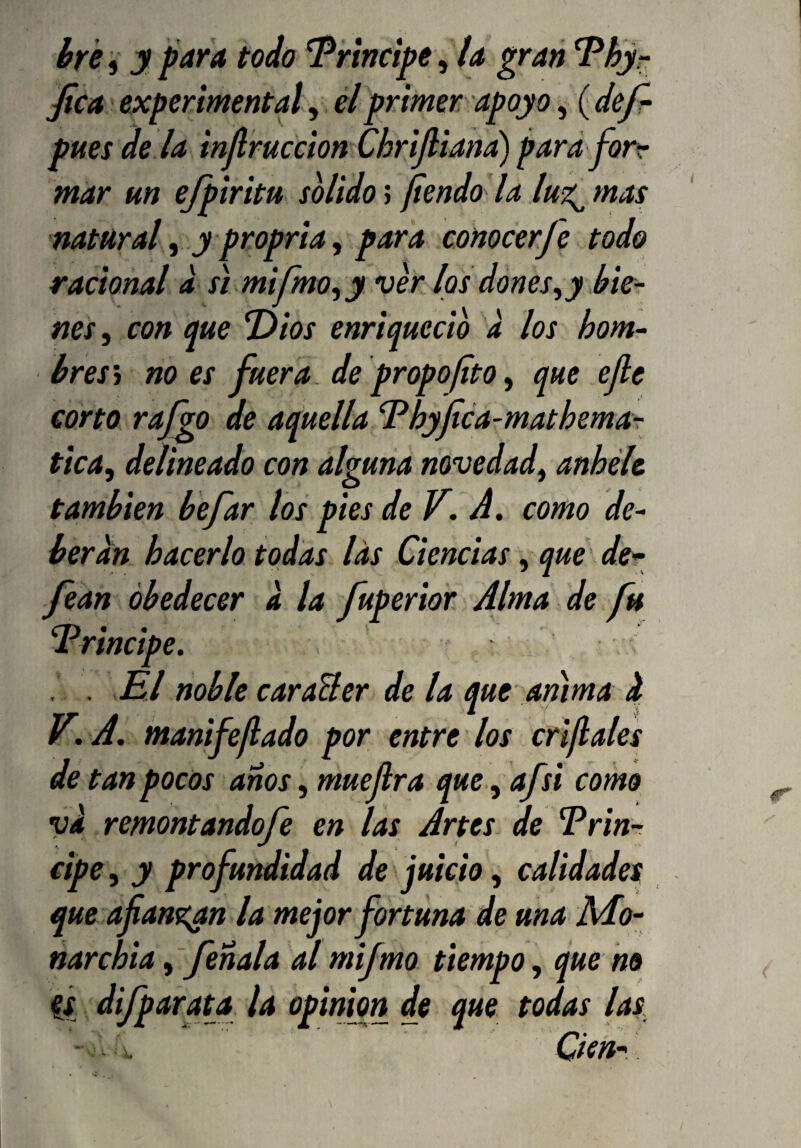 bre, y para todo Principe, la gran Phy-
ſica experimental, el primer apoyo, (deſ-
pues de la inſtruccion Chriſtiana) para for-
mar un eſpiritu sòlido; ſiendo la luz mas
natural, y propria, para conocerſe todo
racional à sì miſmo, y vèr los dones, y bie-
nes, con que Dios enriqueciò à los hom-
bres; no es fuera de propoſito, que eſte
corto raſgo de aquella Phyſica-mathema-
tica, delineado con alguna novedad, anhele
tambien beſar los pies de V. A. como de-
beràn hacerlo todas las Ciencias, que de-
ſean obedecer à la ſuperior Alma de ſu
Principe.
El noble caracter de la que anìma à
V. A. manifeſtado por entre los criſtales
de tan pocos años, mueſtra que, aſsi como
và remontandoſe en las Artes de Prin-
cipe, y profundidad de juicio, calidades
que afianzan la mejor fortuna de una Mo-
narchia, ſeñala al miſmo tiempo, que no
es diſparata la opinion de que todas las
Cien-